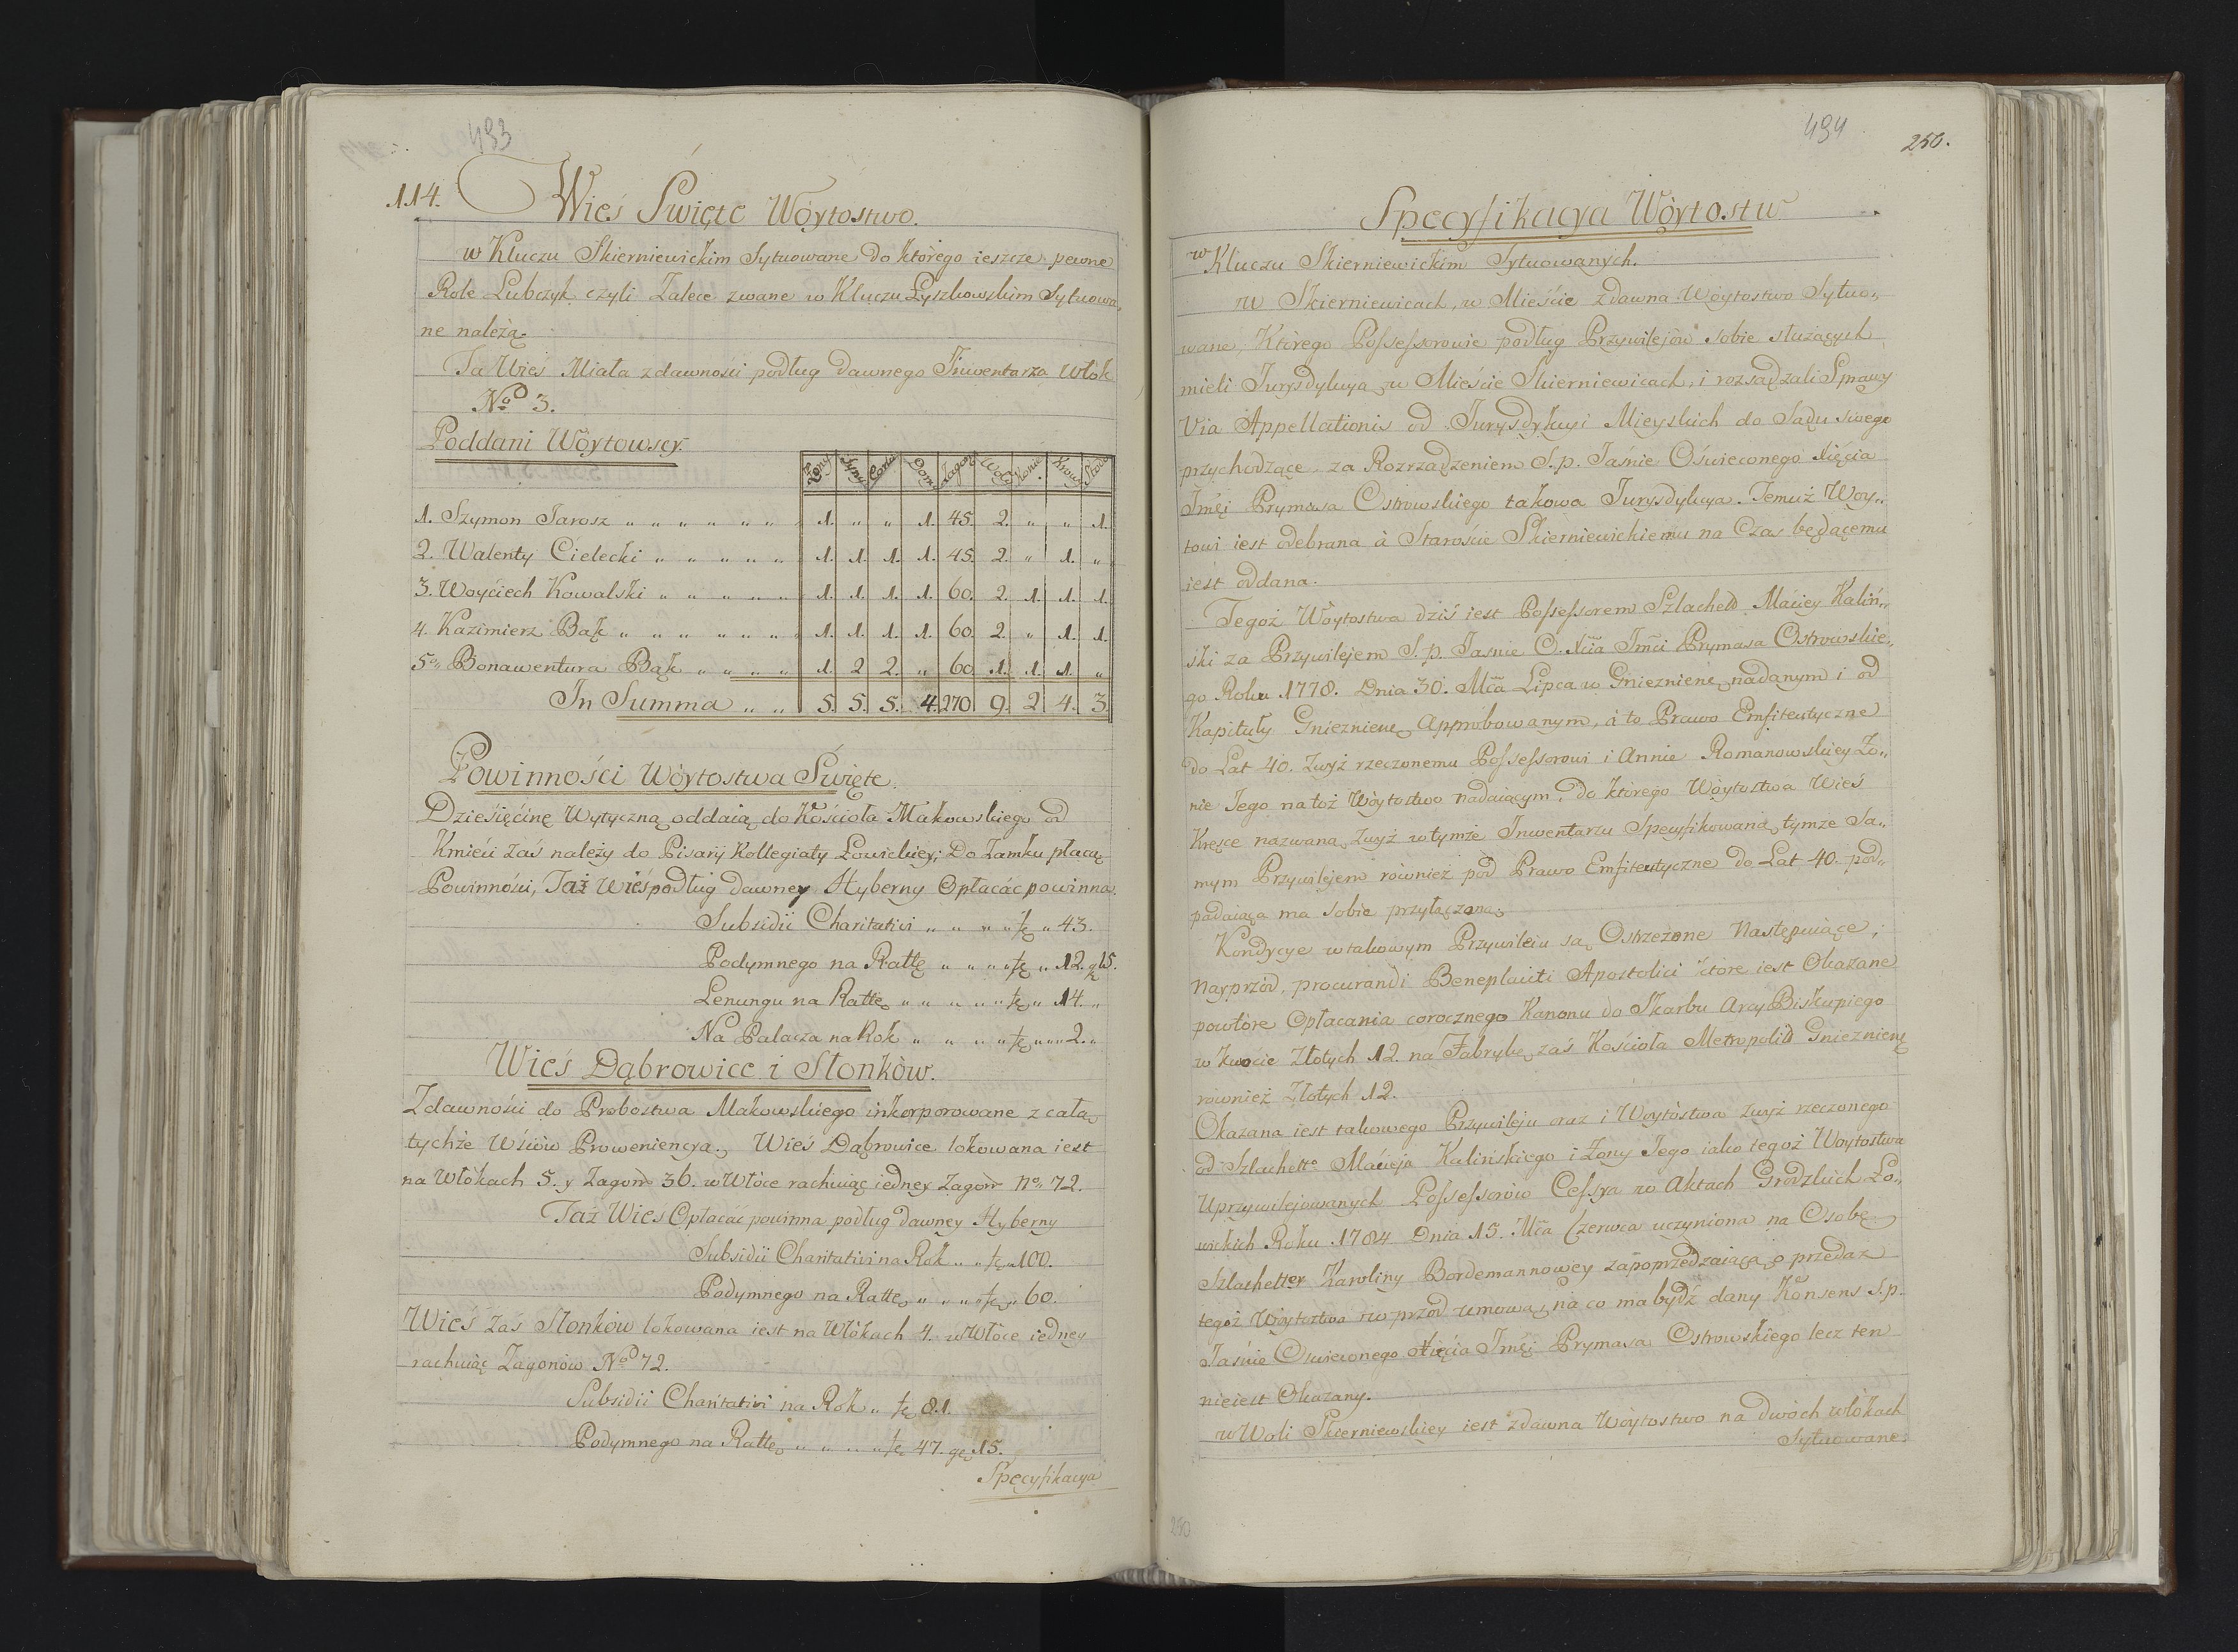 493
114. Wieś Święte Wóytostwo.
w Kluczu Skierniewickim Sytuowane do którego ieszcze pewne
Role Lubczyk czyli Zalece zwane w Kluczu Łyszkowskim Sytuowa„
ne należą.
Ta Wieś Miała zdawności podług dawnego Inwentarza Włók
No 3.
Poddani Wóytowscy.
Żony Syny Corki Domy Zagon Woły Konie Krowy
1. Szymon Jarosz „ „ „ „ „ „ 1. „ „ 1. 45. 2. „ „ 1.
2. Walenty Cielecki „ „ „ „ „ 1. 1. 1. 1. 45. 2. „ 1. „
3. Woyciech Kowalski „ „ „ „ „ 1. 1. 1. 1. 60. 2. 1. 1. 1.
4. Kazimierz Bąk „ „ „ „ „ „ „ 1. 1. 1. 1. 60. 2. „ 1. 1.
5. Bonawentura Bąk „ „ „ „ „ 1 2 2. „ 60. 1. 1. 1. „
In Summa „ „ 5. 5. 5. 4. 270 9. 2 4. 3.
Powinności Wóytostwa Święte.
Dziesięcinę Wytyczną oddaią do Kościoła Makowskiego od
Kmieci zaś należy do Pisarij Kollegiaty Łowickiey; Do Zamku płacą
Powinności, Taż Wieś podług dawney Hyberny Opłacać powinna.
Subsidii Charitativi „ „ „ „ „ 43.
Podymnego na Rattę „ „ „ „ „ 12. g 15.
Lenungu na Rattę „ „ „ „ „ „ 14. „
Na Palacza na Rok „ „ „ „ „ „ 2. „
Wieś Dąbrowice i Słonków.
Zdawności do Probostwa Makowskiego inkorporowane z całą
tychże Wsiów Proweniencyą. Wieś Dąbrowice lokowana iest
na Włókach 5. y Zagonó 36. w Włóce rachuiąc iedney Zagonó No 72.
Taż Wieś Opłacać powinna podług dawney Hyberny
Subsidii Charitativi na Rok „ „ 100.
Podymnego na Rattę „ „ „ „ 60.
Wieś zaś Słonków lokowana iest na Włókach 4. w Włóce iedney
rachuiąc Zagonów No 72.
Subsidii Charitativi na Rok „ 81.
Podymnego na Rattę „ „ „ „ 47. g 15.
Specyfikacya
494 250.
Specyfikacya Wóytostw
w Kluczu Skierniewickim Sytuowanych.
w Skierniewicach, w Mieście zdawna Wóytostwo Sytuo„
wane, Którego Possessorowie podług Przywilejów sobie służących
mieli Jurysdykcyą w Mieście Skierniewicach, i rozsądzali Sprawy
Via Appellationis od Jurysdykcyi Mieyskich do Sądu swego
przychodzące za Rozrządzeniem S. p. Jaśnie Oświeconego Xięcia
Jmći Prymasa Ostrowskiego takowa Jurysdykcya. Temuż Woy„
towi iest odebrana à Staroście Skierniewickiemu na Czas będącemu
iest oddana.
Tegoż Wóytostwa dziś iest Possessorem Szlachetó Maciey Kaliń„
ski za Przywilejem S. p. Jasnie O. Xcia Jmci Prymasa Ostrowskie„
go Roku 1778. Dnia 30. Mca Lipca w Gnieznienę nadanym i od
Kapituły Gnieznienę Approbowanym, à to Prawo Emfiteutyczne
do Lat 40. Zwyż rzeczonemu Possessorowi i Annie Romanowskiey Żo„
nie Jego na toż Wóytostwo nadaiącym, do którego Wóytostwa Wieś
Kręce nazwana, Zwyż w tymże Inwentarzu Specyfikowana, tymże Sa„
mym Przywilejem również pod Prawo Emfiteutyczne do Lat 40. pod„
padaiąca ma sobie przyłączoną.
Kondycye w takowym Przywileiu są Ostrzeżone Następuiące;
Nayprzód, procurandi Beneplaciti Apostolici które iest Okazane
powtóre Opłacania corocznego Kanonu do Skarbu Arcy Biskupiego
w kwocie Złotych 12. na Fabrykę zaś Kościoła Metropolitó Gnieznienę
rownież Złotych 12.
Okazana iest takowego Przywileju oraz i Woytostwa zwyż rzeczonego
od Szlachetto Macieja Kalińskiego i Żony Jego iako tegoż Woytostwa
Uprzywilejowanych Possessorów Cessya w Aktach Grodzkich Ło„
wickich Roku 1784 Dnia 15. Mca Czerwca uczyniona na Osobę
Szlachettey Karoliny Bordemannowey zapoprzedzaiącą o przedaż
tegoż Wóytostwa w przód umową, na co ma bydź dany Konsens S. p.
Jaśnie Oświeconego Xięcia Jmći Prymasa Ostrowskiego lecz ten
nieiest Okazany.
w Woli Skierniewskiey iest zdawna Wóytostwo na dwóch włókach
Sytuowane
250